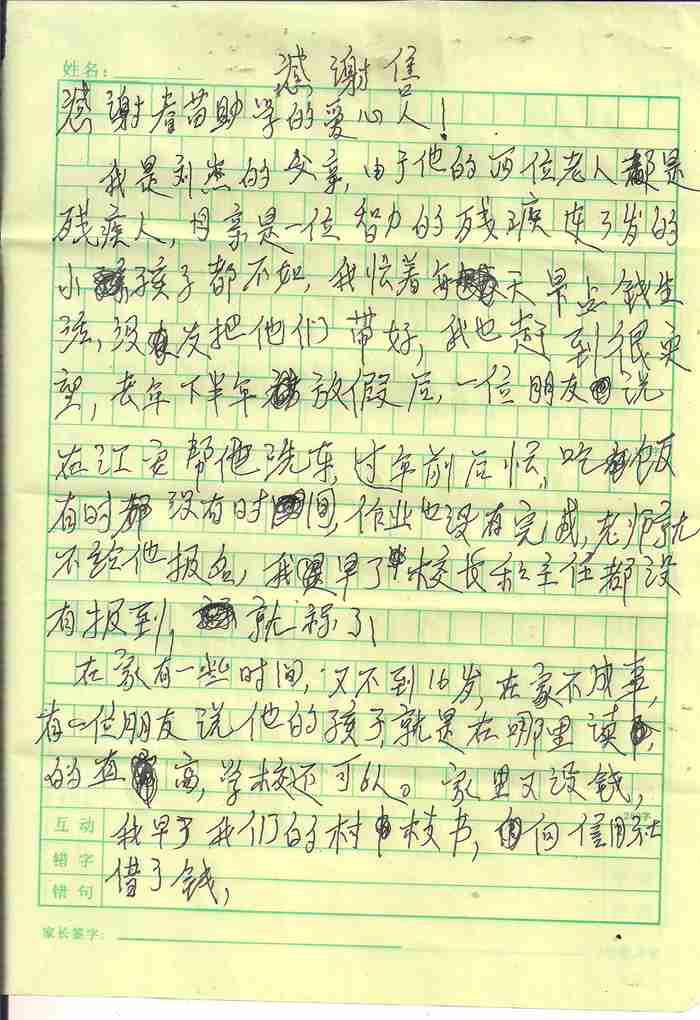 姓名：
感谢信
感谢春苗助学的爱心人！
我是刘杰的父亲，由于他的两位老人都是
残疾人，母亲是一位智力的残疾连3岁的
小孩子都不如，我忙着每天早点钱生
活，没有发把他们带好，我也赶到很失
望，去年下半年放假后，一位朋友说
在江安帮他洗车，过年前后忙，吃饭
有时都没有时间，作业也没有完成，老师就
不给他报名，我早了校长和主任都没
有报到，就
在家有一些时间，又不到16岁，在家不成事，
有一位朋友说他的孩子就是在哪里读，
的直高，学校还可以。家里又没钱，
互动 我早了我们的村支书，向信用社
错字 借了钱，
错句
家长签字：